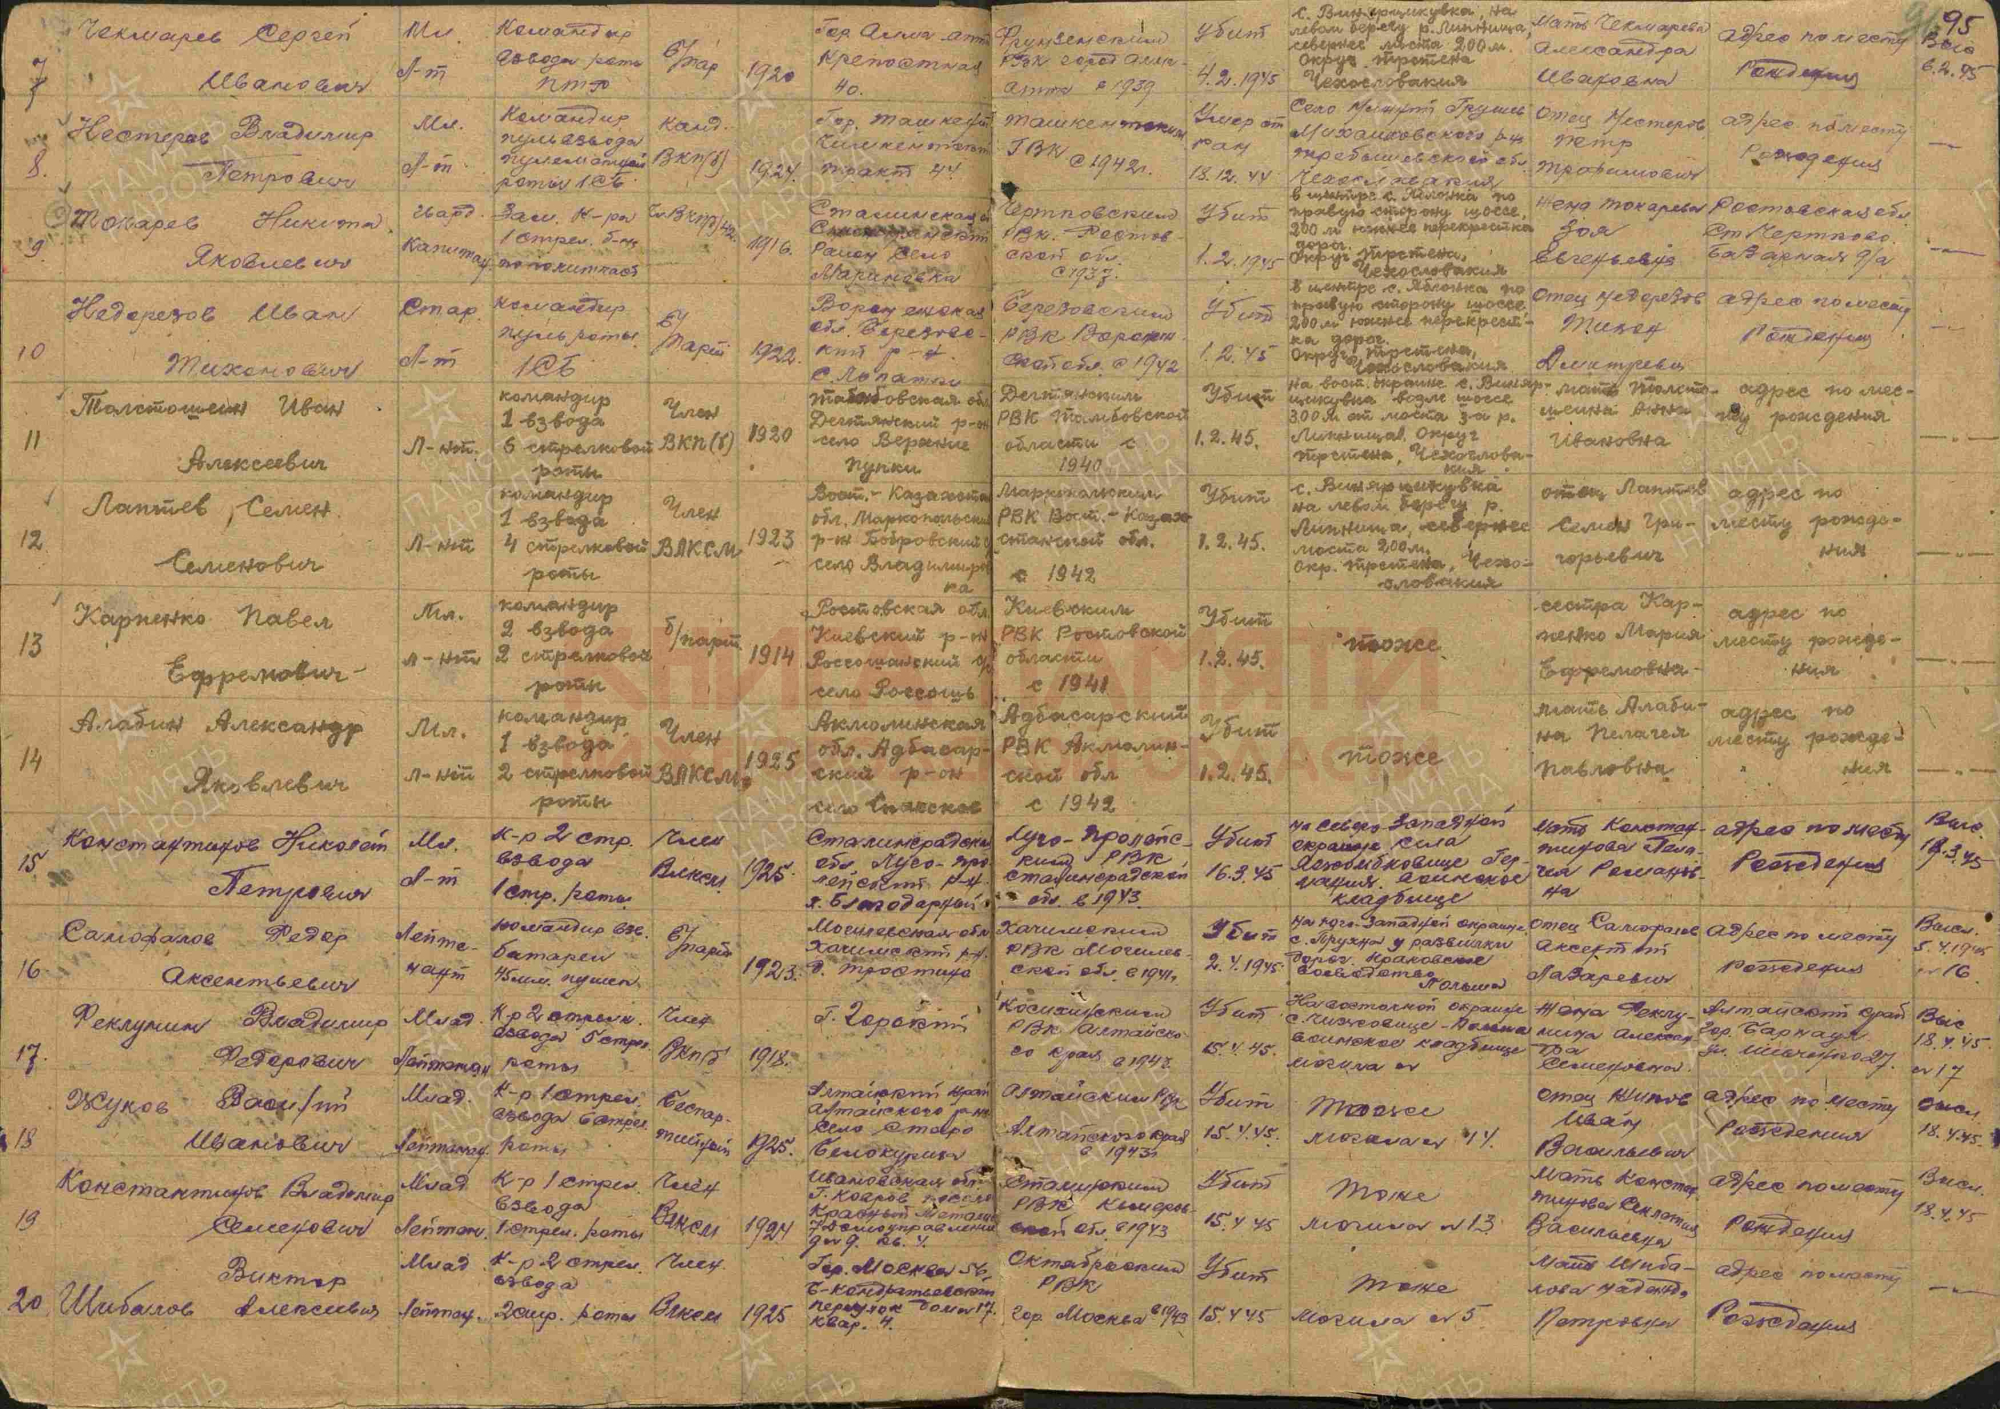 95
7
Чекмарев Сергей
Иванович
Мл.
Л-т
Командир
взвода роты
ПТР
б/пар
1920
Гор Алма-Ата
Крепостная
40.
Фрунзенским
РВК город Алма-
Атта в 1939
Убит
4.2.1945
левом берегу р. Лижница,
севернее моста 200 м.
Округ Трстена
Чехословакия
Мать Чекмарева
Александра
Ивановна
адрес по месту
Рождения
6.2.45
8.
Нестеров Владимир
Петрович
Мл.
Л-т
Командир
пульвзвода
пулеметной
роты 1СБ
Канд.
ВКП(б)
1924.
Гор. Ташкент
тракт 44
Ташкентским
ГВК
с 1942г.
Умер от
ран
18.12.44
Михайловского р-на
Чехословакия
Отец Нестеров
Петр
Трофимович
адрес по месту
Рождения
9
Токарев Никита
Яковлевич
Гвард.
Капитан
Зам. К-ра
1 стрел. б-на
по политчасти
1916.
Сталинская об
Район Село
Марьиновка
Чертковским
РВК. Ростов-
ской обл.
с 1937.
Убит
1.2.1945
в центре с. Яблонка по
правую сторону шоссе,
200 м южнее перекрестка
дорог.
Округ Трстена,
Чехословакия
Жена Токарева
Зоя
Евгеньевна
Ростовская обл
Ст. Чертково.
Базарная 9/а
10
Недорезов Иван
Тихонович
Стар.
Л-т
Командир
пульроты
1СБ
б/
парт
1922.
Воронежская
обл. Березовс-
кий р-н.
с. Лопатки
Березовским
РВК Воронеж.
ской обл. с 1942
Убит
1.2.45
в центре с. Яблонка по
правую сторону шоссе
200 м южнее перекрест-
ка дорог.
Округ Трстена,
Чехословакия
Отец Недорезов
Тихон
Дмитреевич
адрес по месту
Рождения
11
Толстошеин Иван
Алексеевич
Л-нт.
командир
1 взвода
6 стрелковой
роты
Член
ВКП(б)
1920
Тамбовская обл
Дегтянский р-он
село Верхние
Пупки
Дегтянским
РВК Тамбовской
области с
1940
Убит
1.2.45.
на вост. окраине с. Виняр-
цикувка возле шоссе
300 м от моста за р.
Лижница, Округ
Трстена, Чехослова-
кия
мать Толсто-
шеина Анна
Ивановна
адрес по мес-
ту рождения
12
Лаптев Семен
Семенович
Л-нт
командир
1 взвода
4 стрелковой
роты
Член
ВЛКСМ
1923
Вост.-Казахста
обл. Маркопольский
р-н Бобровский
село Владимиров
ка
Маркопольским
РВК Вост.-Казах-
станской обл.
с 1942
Убит
1.2.45.
с. Винярцикувка
на левом берегу р.
Лижница, севернее
моста 200 м.
окр. Трстена, Чехо-
словакия
отец Лаптев
Семен Гри-
горьевич
адрес по
месту рожде-
ния
13
Карпенко Павел
Ефремович
Мл.
л-нт
командир
2 взвода
2 стрелковой
роты
б/парт
1914
Ростовская обл
Киевский р-он
Россошанский с/с
село Россошь
Киевским
РВК Ростовской
области
с 1941
Убит
1.2.45.
тоже
сестра Кар-
пенко Мария
Ефремовна
адрес по
месту рожде-
ния
14
Алабин Александр
Яковлевич
Мл.
л-нт
командир
1 взвода
2 стрелковой
роты
Член
ВЛКСМ
1925
Акмолинская
обл. Адбасар-
ский р-он
село Спасское
Адбасарский
РВК Акмолин-
ской обл
с 1942
Убит
1.2.45.
тоже
мать Алаби-
на Пелагея
Павловна
адрес по
месту рожде-
ния
15
Константинов Николай
Петрович
Мл.
Л-т
К-р 2 стр.
взвода
1 стр. роты
Член
ВЛКСМ
1925.
Сталинградская
обл. Луго-про
лейский р-н.
х. Благодарный
Луго-Пролейс-
ким РВК
Сталинградской
обл. в 1943.
Убит
16.3.45
на Северо-Западной
окраине села
Германия. Воинское
кладбище
Мать Констан-
тинова Пела-
гея Романов-
на
адрес по месту
Рождения
Высл.
19.3.45
16
Самофалов Федор
Аксентьевич
Лейте-
нант
Командир взв.
батареи
45 мм. пушек
б/
парт
1923.
Могилевская обл
Хотимский р-н.
д. Тростино
Хотимским
РВК Могилев-
ской обл. в 1941г.
Убит
2.4.1945
на юго-Западной окраине
с. Брухна у развилки
дорог. Краковское
воеводство
Польша
Отец Самофалов
Аксентий
Лазаревич
Адрес по месту
Рождения
Высл.
5.4.1945
№ 16
17.
Феклунин Владимир
Федорович
Млад.
Лейтенан
К-р 2 стрелк.
взвода 5 стрел.
роты
Член
ВКП/б
1918.
Г. Горький
Косихинским
РВК Алтайско-
го края в 1942
Убит
15.4.45.
На восточной окраине
с. Чижовице - Польша
воинское кладбище
могила №
Жена Феклу-
нина Алексан
дра
Семеновна
Алтайский край
гор. Барнаул
ул. Шевченко 27.
Выс
18.4.45.
№ 17
18
Жуков Василий
Иванович
Млад.
Лейтенант
К-р 1 стрел.
взвода 6 стрел.
роты
Беспар-
тийный
1925.
Алтайский край
Алтайского р-на
Село Старо
Белокуриха
Алтайским РВК
Алтайского края
в 1943г.
Убит
15.4.45.
Тоже
могила № 14.
Отец Жуков
Иван
Васильевич
адрес по месту
Рождения
высл
18.4.45.
19
Константинов Владимир
Семенович
Млад
Лейтен.
К-р 1 стрел.
взвода
1 стрел. роты
Член
ВЛКСМ
1924
Ивановская обл.
Г. Ковров поселок
Красный Металист
7 Домоуправление
дом 9. кв. 4.
Сталинским
РВК Кемеров-
ской обл. в 1943
Убит
15.4.45
Тоже
могила № 13
Мать Констан
тинова Феклетия
Васильевна
адрес по месту
Рождения
Высл.
18.4.45
20
Шибалов Виктор
Алексеевич
Млад
Лейтен.
К-р 2 стрел.
взвода
2 стр. роты
Член
ВЛКСМ
1925
Гор. Москва 56,
Б-Кондратьевский
переулок Дом № 17.
квар. 4.
Октябрьским
РВК
гор Москва в 1943
Убит
15.4.45
Тоже
могила № 5
Мать Шиба-
лова Надежда
Петровна
адрес по месту
Рождения
КНИГА ПАМЯТИ
ПАМЯТЬ
НАРОДА